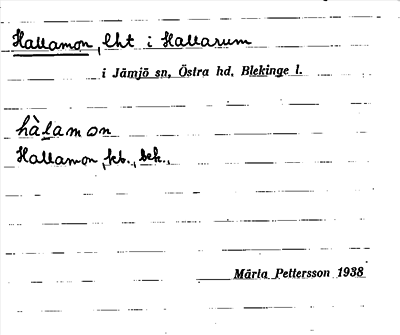 Hallamon, lht i Hallarum
i Jämjö sn, Östra hd, Blekinge l.
hàlamon
Hallamon, kb., bek.,
Märta Pettersson 1938